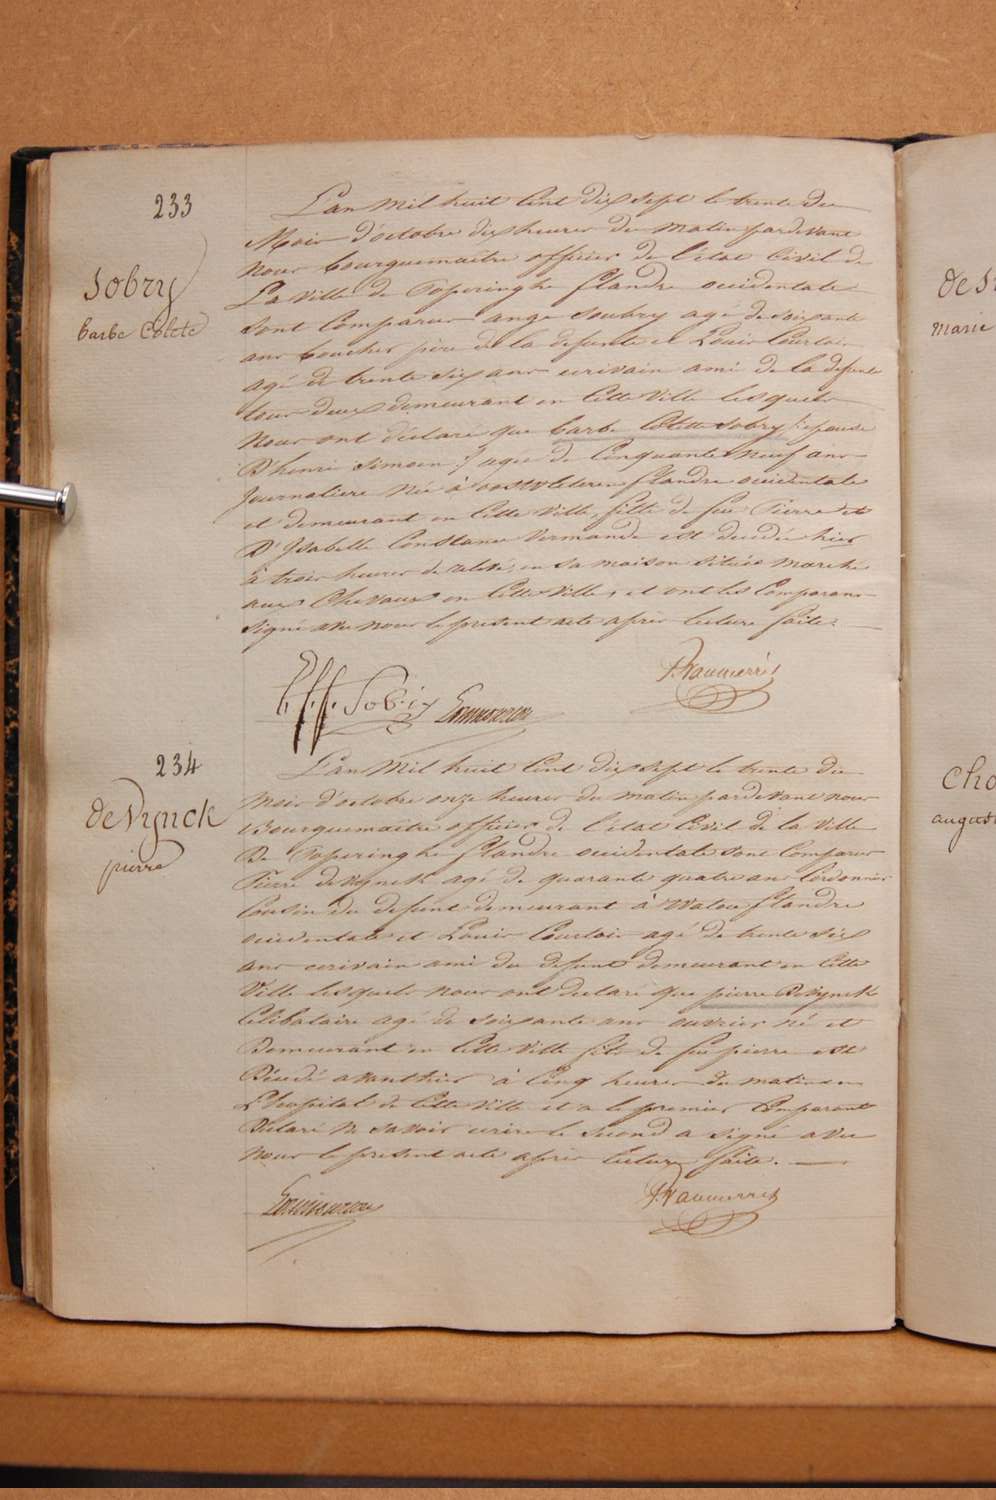 233
Sobry
barbe Colete
L'an Mil huit Cent dix sept le trente du
Mois d'octobre dix heures du matin pardevant
nous bourguemaitre officier de l'état Civil de
La Ville de Poperinghe flandre occidentale
sont Comparus ange Soubry agé de soixante
ans boucher père de la defunte et Louis Courtois
agé de trente six ans ecrivain ami de la defunte
tous deux demeurant en Cette Ville lesquels
Nous ont déclaré que barbe Colette Sobry epouse
D'henri Simoen agée de Cinquante neuf ans
Journaliere née à oostvleteren flandre occidentale
et demeurant en Cette Ville, fille de feu Pierre et
D'Isabelle Constance Vermande est decedée hier
à trois heures de relevée, en sa maison située marché
aux Chevaux en Cette Ville, et ont les Comparans
signé avec nous le present acte après lecture faite.
Sobry
234
de Vynck
pierre
L'an Mil huit Cent dix sept le trente du
mois d'octobre onze heures du matin pardevant nous
Bourguemaitre officier de l'état Civil de la Ville
De Poperinghe flandre occidentale sont Comparus
Pierre devynck agé de quarante quatre ans Cordonnier
Cousin du defunt demeurant à Watou flandre
occidentale et Louis Courtois agé de trente six
ans ecrivain ami du defunt demeurant en Cette
Ville lesquels nous ont declaré que pierre Devynck
Celibataire agé de soixante ans ouvrier né et
Demeurant en Cette Ville fils de feu pierre est
Décedé avanthier à Cinq heures du matin en
L'hospital de Cette Ville et a le premier Comparant
Declaré ne savoir ecrire le second a signé avec
nous le present acte après lecture faite.
de
marie
Cho